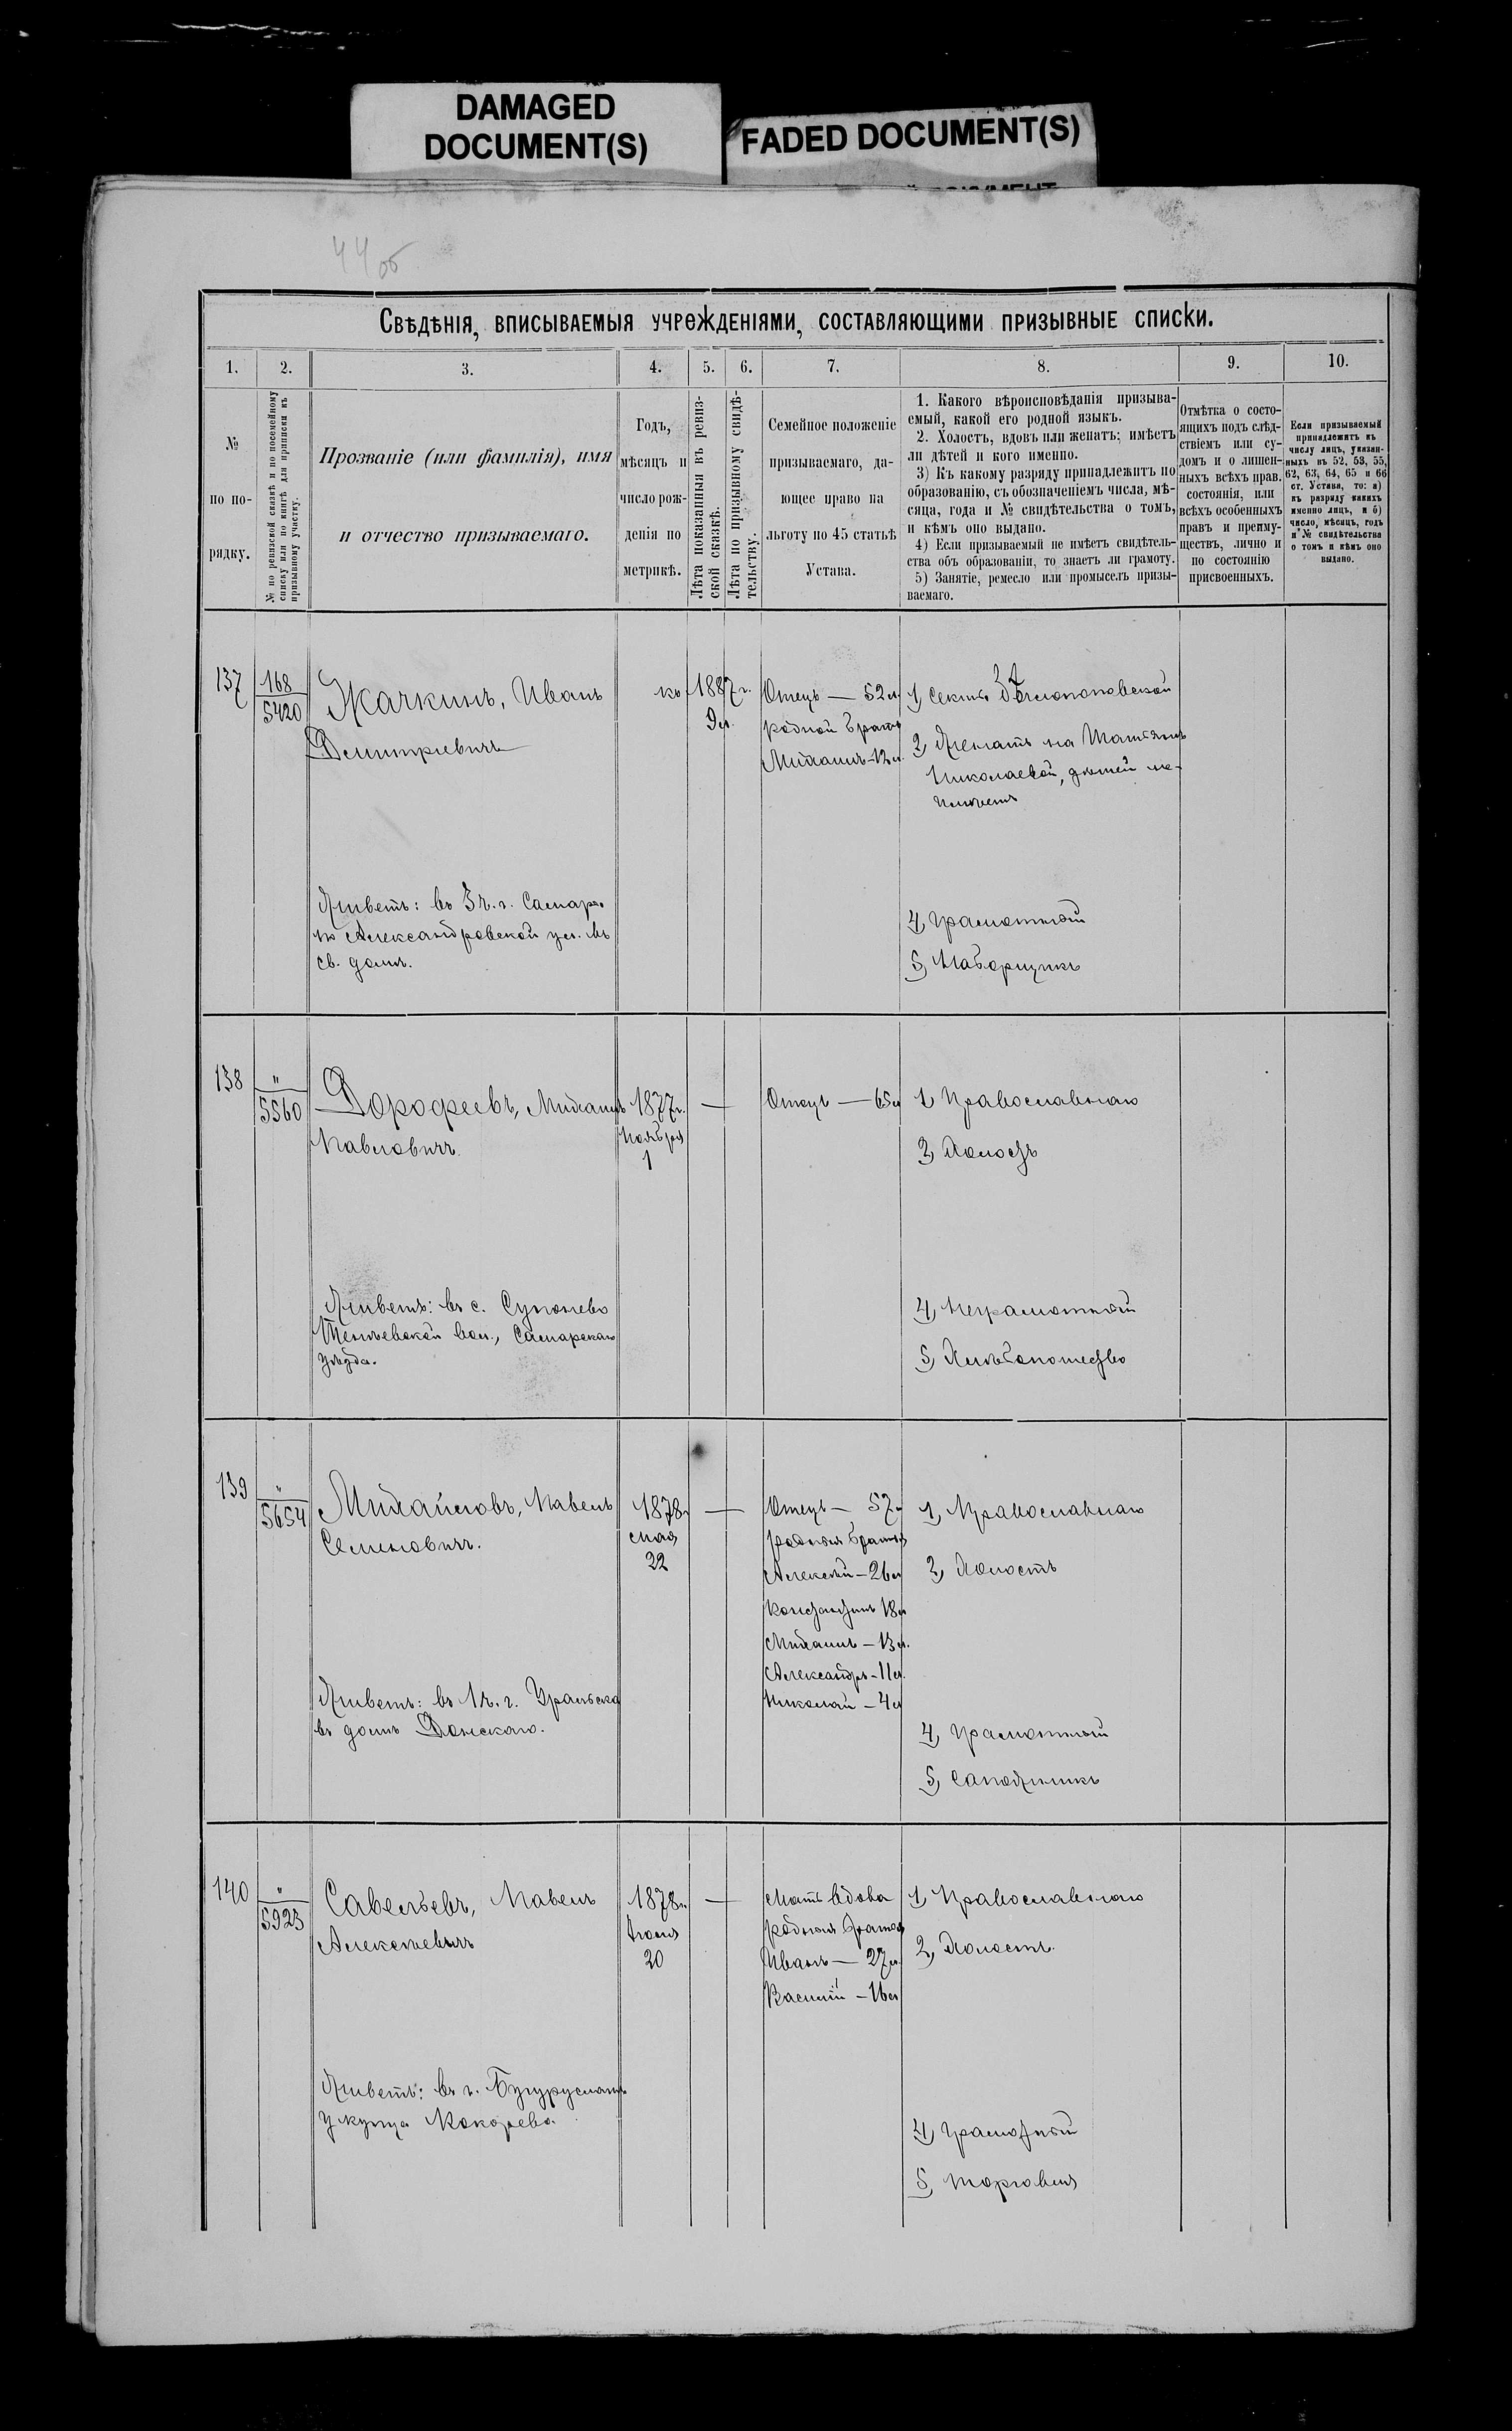 DAMAGED
DOCUMENT(S)
FADED DOCUMENT(S)
44об
Свѣдѣнія, вписываемыя учрежденіями, составляющими призывные списки.
1.
2.
3.
4.
5.
6.
7.
8.
9.
10.
№
по по-
рядку.
№ по ревизской сказкѣ и по посемейному
списку или по книгѣ для приписки къ
призывному участку.
Прозваніе (или фамилія), имя
и отчество призываемаго.
Годъ,
мѣсяцъ и
число рож-
денія по
метрикѣ.
Лѣта показанныя въ ревиз-
ской сказкѣ.
Лѣта по призывному свидѣ-
тельству.
Семейное положеніе
призываемаго, да-
ющее право на
льготу по 45 статьѣ
Устава.
1. Какого вѣроисповѣданія призыва-
емый, какой его родной языкъ.
2. Холостъ, вдовъ или женатъ; имѣетъ
ли дѣтей и кого именно.
3) Къ какому разряду принадлежитъ по
образованію, съ обозначеніемъ числа, мѣ-
сяца, года и № свидѣтельства о томъ,
и кѣмъ оно выдано.
4) Если призываемый не имѣетъ свидѣтель-
ства объ образованіи, то знаетъ ли грамоту.
5) Занятіе, ремесло или промыселъ призы-
ваемаго.
Отмѣтка о состо-
ящихъ подъ слѣд-
ствіемъ или су-
домъ и о лишен-
ныхъ всѣхъ прав.
состоянія, или
всѣхъ особенныхъ
правъ и преиму-
ществъ, лично и
по состоянію
присвоенныхъ.
Если призываемый
принадлежитъ къ
числу лицъ, указан-
ныхъ въ 52, 53, 55,
62, 63, 64, 65 и 66
ст. Устава, то: а)
къ разряду какихъ
именно лицъ, и б)
число, мѣсяцъ, годъ
и № свидѣтельства
о томъ и кѣмъ оно
выдано.
137
168
5420
Жачкинъ, Иванъ
Дмитріевичъ
Живетъ: въ 3 ч. г. Самары
по Александровской ул. въ
св. домѣ.
къ 1887 г.
9 л.
Отецъ — 52 л.
родной братъ
Михаилъ - 12 л.
1, Секты
2, Женатъ на Татьянѣ
Николаевой, дѣтей не
имѣетъ
4, Грамотный
5, Наборщикъ
138
"
5560
Дорофеевъ, Михаилъ
Павловичъ
Живетъ: въ с.
вол., Самарскаго
уѣзда.
1877 г.
Ноября
1
—
Отецъ — 65 л
1, Православнаго
2, Холостъ
4, Неграмотный
5, Хлѣбопашество
139
"
5654
Михайловъ, Павелъ
Семеновичъ.
Живетъ: въ 1 ч. г. Уральска
въ домѣ Донскаго.
1878 г
мая
22
—
Отецъ — 57 л
родныя братья
Алексѣй — 26 л
Константинъ 18 л
Михаилъ — 13 л.
Александръ - 11 л.
Николай — 4 л
1, Православнаго
2, Холостъ
4, Грамотный
5, Сапожникъ
140
"
5923
Савельевъ, Павелъ
Алексѣевичъ
Живетъ: въ г. Бугурусланѣ
у купца Кокорева.
1878 г.
Іюня
20
—
Мать вдова
родныя братья
Иванъ — 27 л.
Василій — 16 л
1, Православнаго
2, Холостъ.
4, Грамотный
5, Торговля